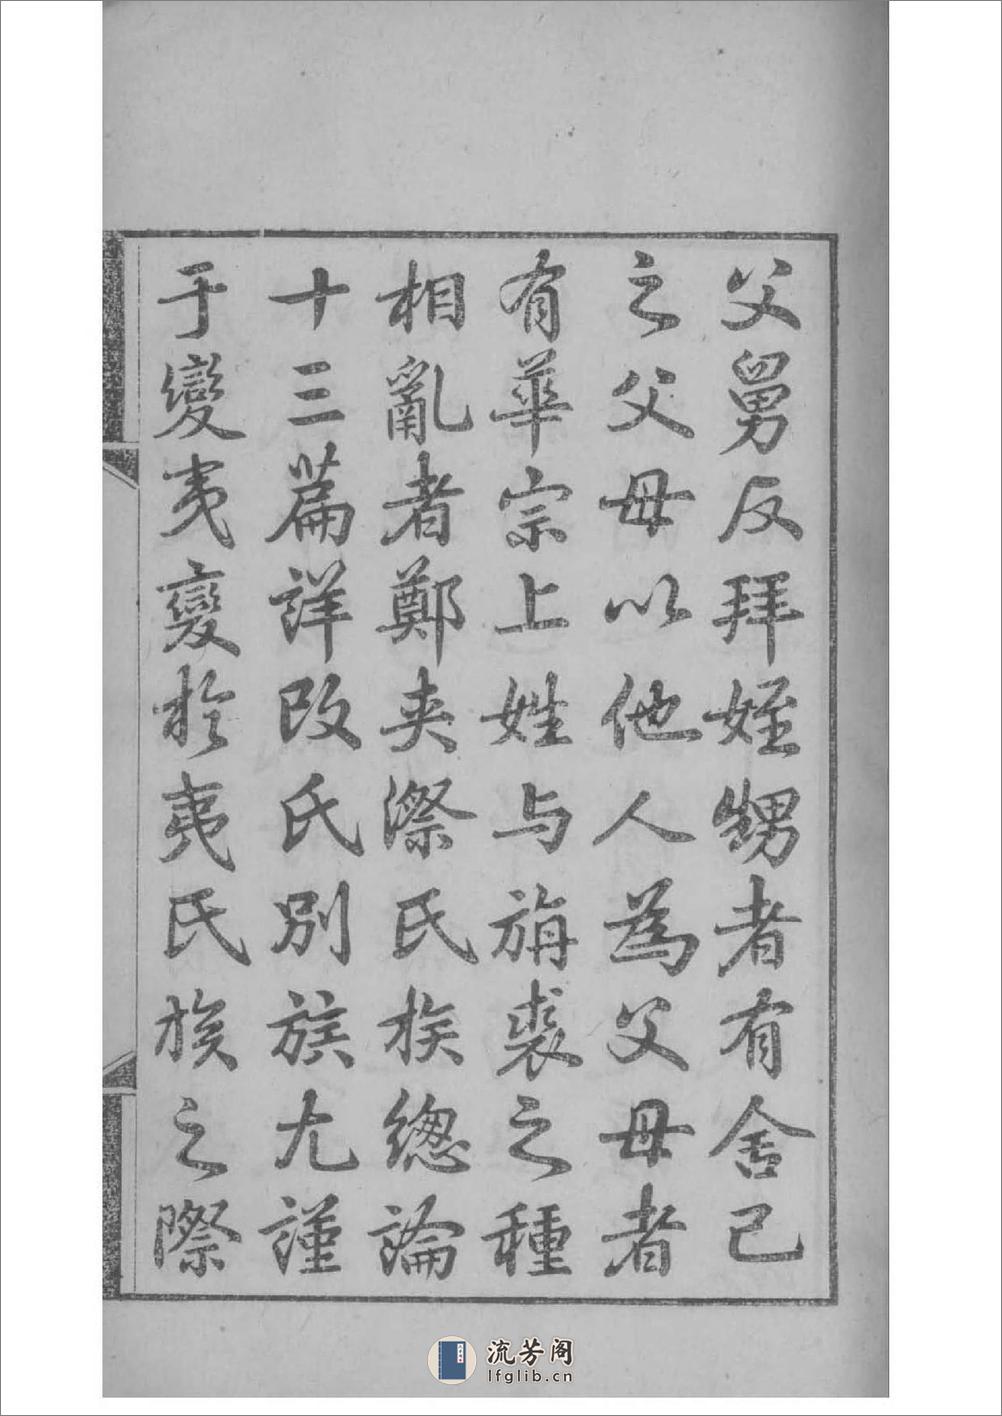 父舅反拜姪甥者有舍己
之父母以他人為父母者
有華宗上姓与旃裘之種
相亂者鄭夾漈氏族總論
十三篇詳改氏別族尤謹
于變夷變於夷氏族之際
流芳阁
lfglib.cn